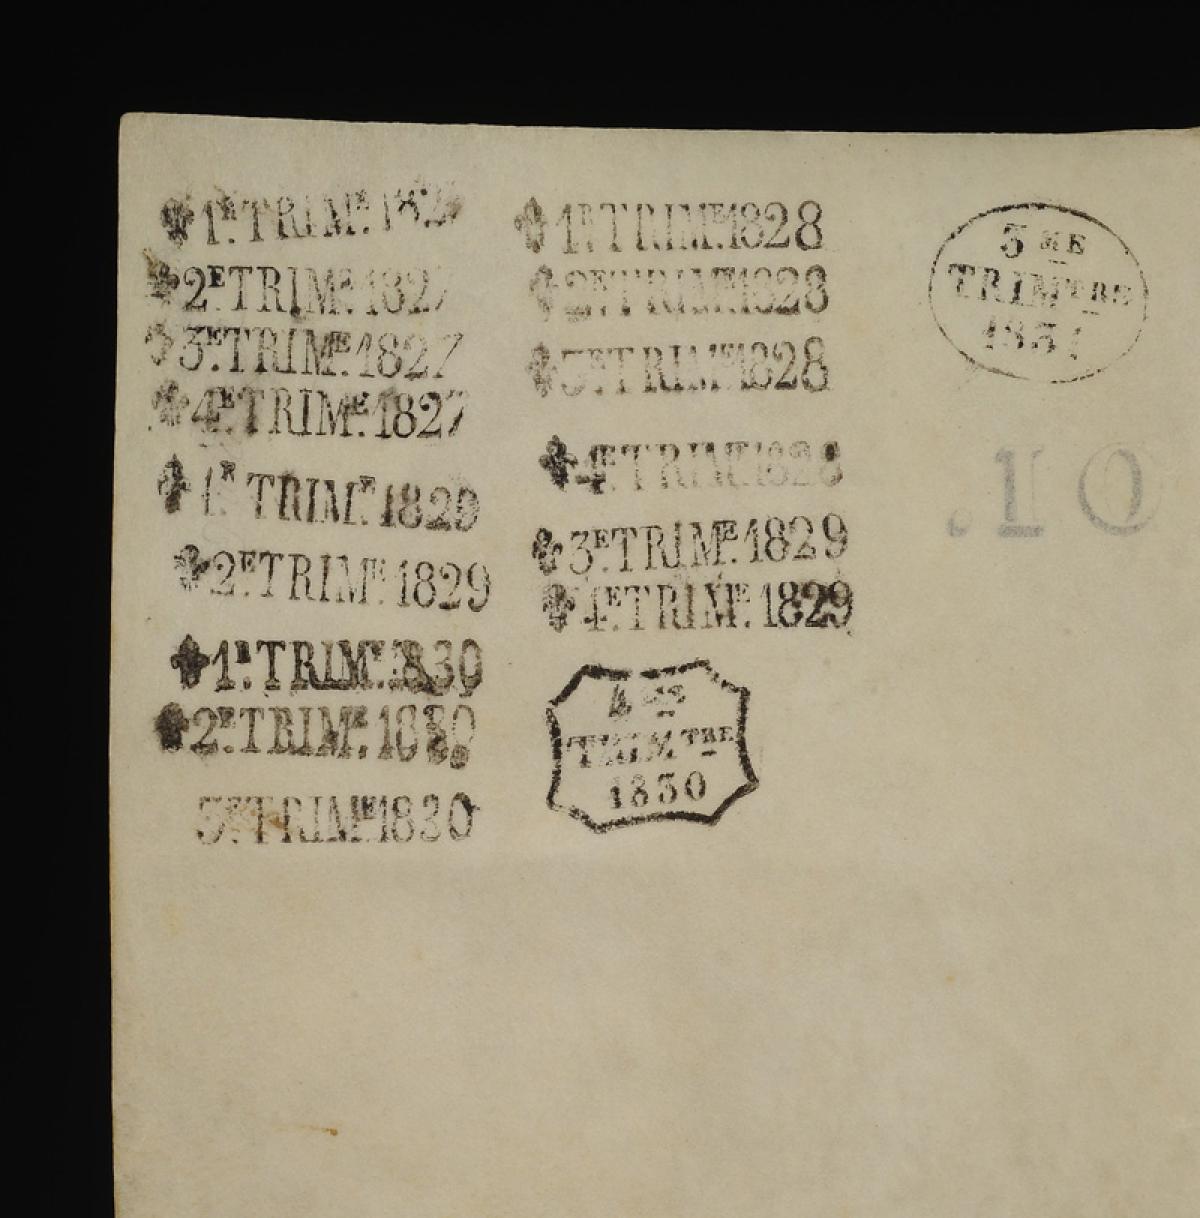 1R. TRIME. 1827
2E TRIME. 1827
3E. TRIME. 1827
4E. TRIME. 1827
1R TRIME. 1829
2E TRIME. 1829
1R. TRIME. 1830
2E. TRIME. 1830
3E. TRIME. 1830
1R. TRIME. 1828
2E. TRIME. 1828
3E. TRIME. 1828
4E. TRIME. 1828
3E. TRIME. 1829
4E. TRIME. 1829
4ME
TRIMTRE
1830
3ME
TRIMTRE